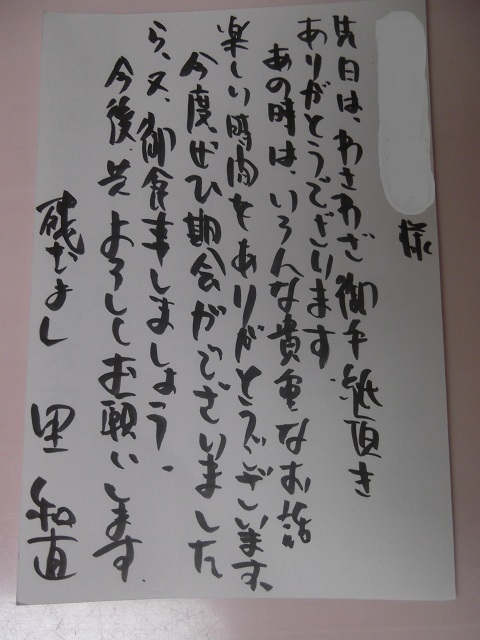 様
先日は、わざわざ御手紙頂き
ありがとうでざります
あの時は、いろんな貴重なお話
楽しい時間をありがとうございます、
今度ぜひ期会がございました
ら、又、御食事しましょう、
今後共よろしくお願いします、
磯むよし 里 和直